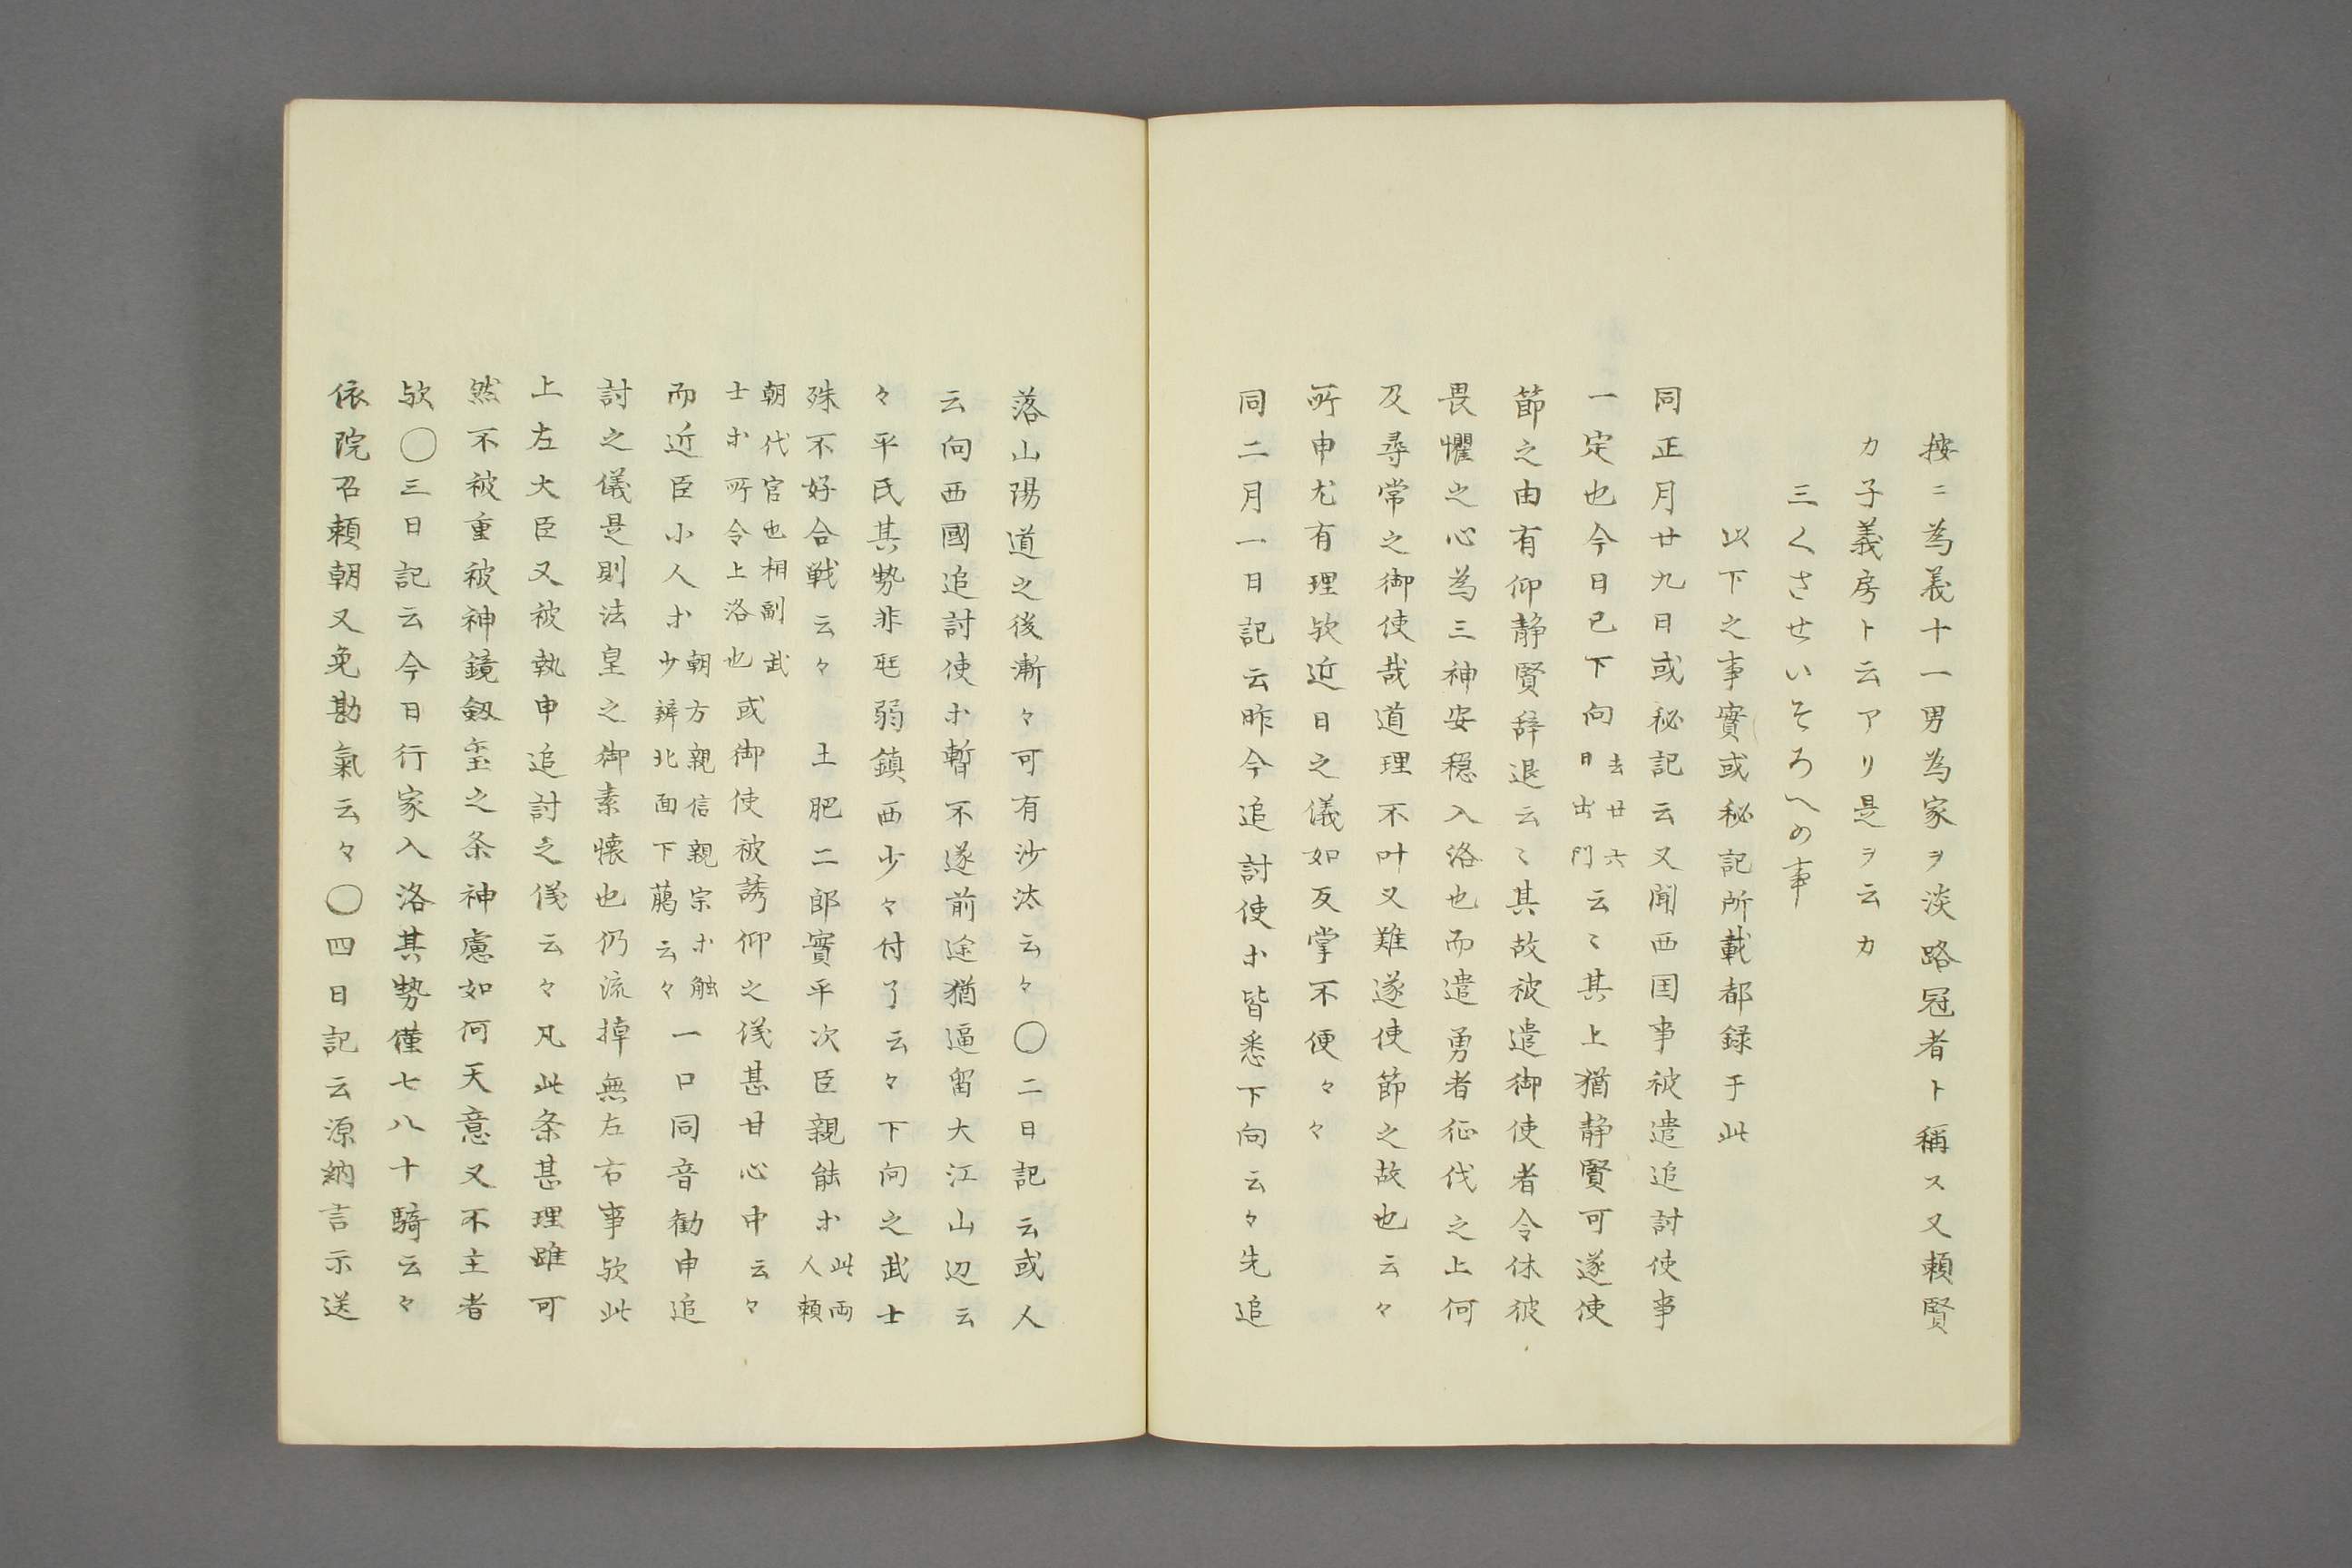 按ニ為義十一男為家ヲ淡路冠者ト稱ス又頼賢
カ子義房ト云アリ是ヲ云カ
三くさせいそろへの事
以下之事實或秘記所載都録于此
同正月廿九日或秘記云又聞西国事被遣追討使事
一定也今日已下向去廿六日出門云〻其上猶静賢可遂使
節之由有仰静賢辞退云〻其故被遣御使者令休彼
畏懼之心為三神安穏入洛也而遣勇者征伐之上何
及尋常之御使哉道理不叶又難遂使節之故也云々
所申尤有理欤近日之儀如反掌不便々々
同二月一日記云昨今追討使ホ皆悉下向云々先追
落山陽道之後漸々可有沙汰云々〇二日記云或人
云向西國追討使ホ暫不遂前途猶逼留大江山辺云
々平氏其勢非尩弱鎮西少々付了云々下向之武士
殊不好合戦云々　土肥二郎實平次臣親能ホ此両人頼
朝代官也相副武士ホ所令上洛也或御使被誘仰之儀甚甘心中云々
而近臣小人ホ朝方親信親宗ホ触少辨北面下﨟云々一口同音勧申追
討之儀是則法皇之御素懐也仍流掉無左右事欤此
上左大臣又被執申追討之儀云々凡此条甚理雖可
然不被重被神鏡劔玺之条神慮如何天意又不主者
欤〇三日記云今日行家入洛其勢僅七八十騎云々
依院召頼朝又免勘氣云々〇四日記云源納言示送